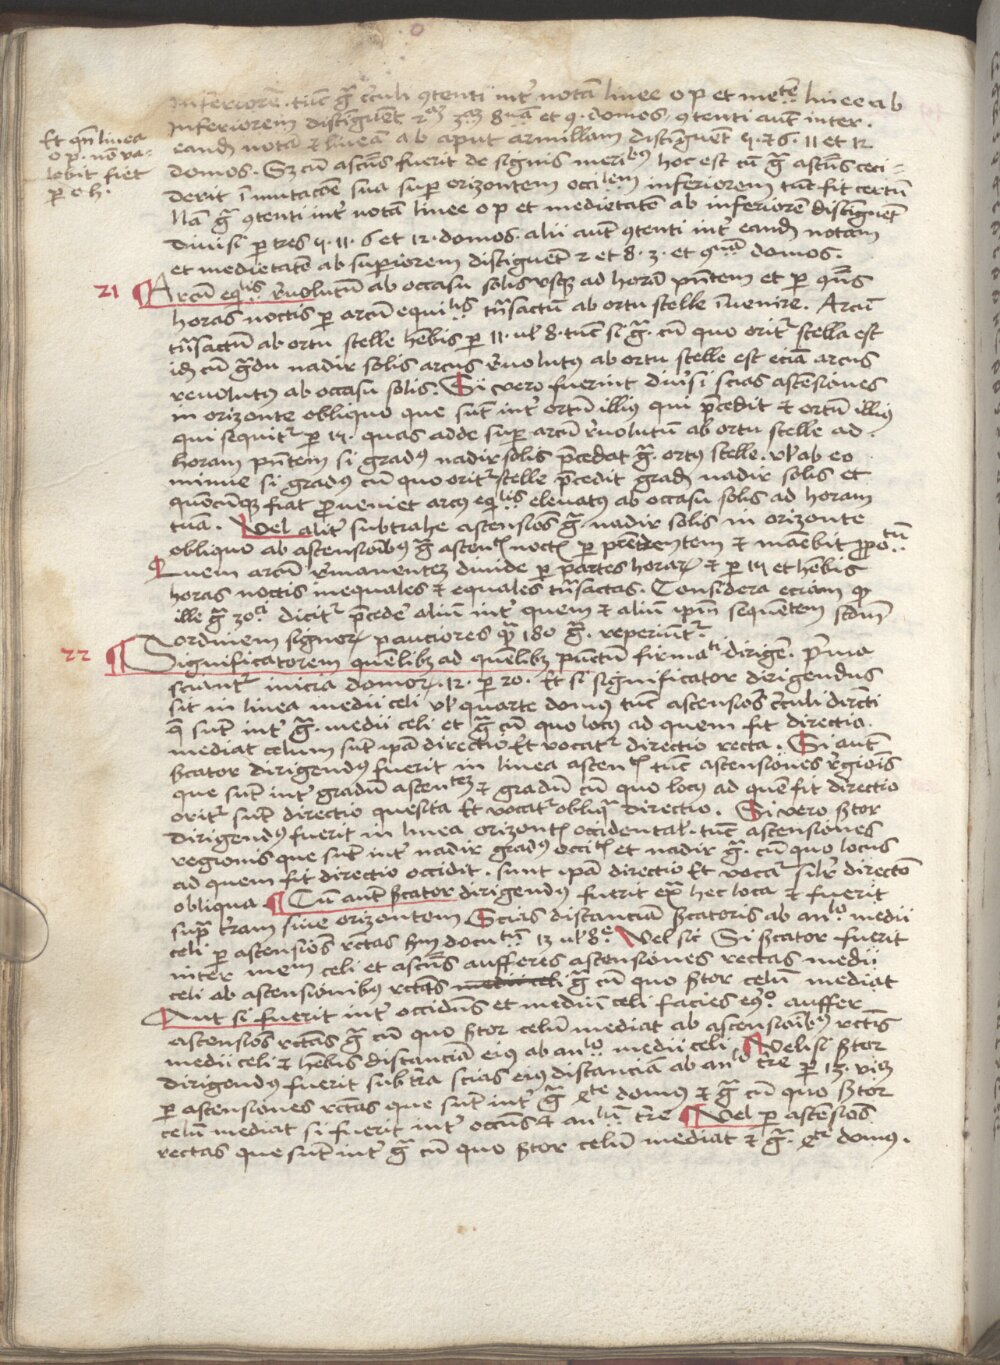 inferiorē. tūc g̃ circuli ꝯtenti int̾ notā linee o p et metē linee ab
inferiorem distīguēt 2am 3am 8uā et 9. domos ꝯtenti aūt inter.
eandē notā et lineam ab aput armillam distīguēt 5. et 6. 11 et 12
domos. Sz cū ascēns fuerit de signis meribus hoc est cū g̃ ascēns ceci-
derit ī mutacōe sua sup orizontem occilem inferiorem tūc fit
g̃ ꝯtenti int̾ notā linee o p et medietatē ab inferiorē distīguēt
divisi p tres 5. 11. 6 et 12. domos. alii aūt ꝯtenti int̾ eandē notam
et medietatē ab superiorem distiguēt 2 et 8. 3. et 9nā domos.
Et qn̄ linea
o p. nō va-
lebit fiet
p e h.
21 Arcū eqlis rͤvolutū ab occasu solis usqz ad horā pn̄tem et p qn̄s
horas noctis p arcū equilis tn̄sactū ab ortu stelle īvenire. Arcū
tn̄sactū ab ortu stelle hēbis p 11. ul̾ 8. tūc si g̃. cū quo orit̾ stella est
id cū g̃du nadir solis arcus rͤvolutus ab ortu stelle est eciā arcus
revolutus ab occasu solis. Si vero fuerint div̾si scias ascensiones
in orizonte obliquo que sūt int̾ ortū illius qui p̄cedit et ortū illius
qui sequit̾ p 15. quas adde sup arcū rͤvolutū ab ortu stelle ad.
horam pn̄tem si gradus nadir solis p̄cedat g̃. ortus stelle. vl̾ ab eo
minue si gradus cū quo orit̾ stelle p̄cedit gradū nadir solis et
quodcūqz fiat proveniet arcus eqlis elevatus ab occasu solis ad horam
tuā. Vel alit̾ subtrahe ascensiōs g̃. nadir solis in orizonte
obliquo ab ascensioībus g̃ ascentis noctis p p̄cedentem et manēbit
Quem arcū rͤmanentez divide p partes horar̄ et p 15 et hēbis
horas noctis inequales et equales tn̄sactas. Considera eciam qz
ille g̃ zoci dicit̾ p̄cede̾ aliū int̾ quem et aliū sequētem scdm̄
ordinem signor̄ pauciores q̄ 180 g̃. reperiūt̾.
22 Significatorem quēlibz ad quēlibz punctum firmati dirige̾. p̾mo
sciant̾ inicia domor̄. 12. p 20. Et si significator dirigendus
sit in linea medii celi vl̾ quarte domus tūc ascensiōs circuli dircti
q̄ sūt int̾ g̃. medii celi et g̃ cū quo locus ad quem fit directio.
mediat celum sūt ip̄a directio Et vocat̾ directio recta. Si aūt
scator dirigendus fuerit in linea ascentis tūc ascensiones rͤgiōis
que sūt int̾ gradū ascentez et gradū cū quo locus ad quē fit directio
orit̾ sūt directio quesita Et vocat̾ obliqa directio. Si vero stor
dirigendus fuerit in linea orizontis occidental̾. tūc ascensiones
regionis que sūt int̾ nadir gradus occitis et nadir g̃. cū quo locus
ad quem fit directio occidit. sunt ip̄a directio Et vocat̾ silr̾ directō
obliqua. Cū aūt scator dirigendus fuerit ext̾ hec loca et fuerit
sup̄ t̾ram sive orizontem Scias distanciā scatoris ab anlo. medii
celi p ascensiōs rectas scdm docutū. 13 ul̾ 8e. Vel sic Si scator fuerit
inter mem celi et ascēns aufferes ascensiones rectas medii
celi ab ascensionibus rctās medii celi g̃ cū quo stor celū mediat
Aut si fuerit int̾ occidēns et mediū celi facies eo. auffer
ascensiōs rctās g̃ cū quo stor celū mediat ab ascensioībus rctīs
medii celi et hēbis distanciā eius ab anlo medii celi. Vel si stor
dirigendus fuerit sub t̾ra scias eius distanciā ab anlo t̾re p 13. viz
p ascensiones rctas que sūt int̾ g̃ 4te domus et g̃ cū quo stor
celū mediat si fuerit int̾ occēns et anlum t̾re Vel p ascēsiōs
rectas que sūt int̾ g̃ cū quo stor celū mediat et g̃. 4te domus.